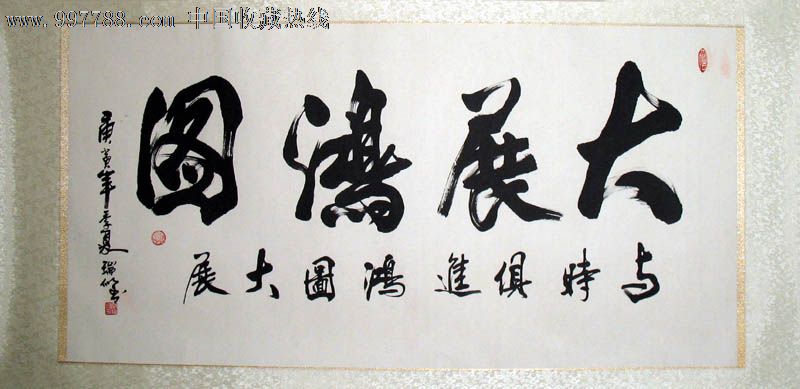 www.997788.com 中国收藏热线
大展鴻图
与時俱進鴻圖大展
庚寅年季夏